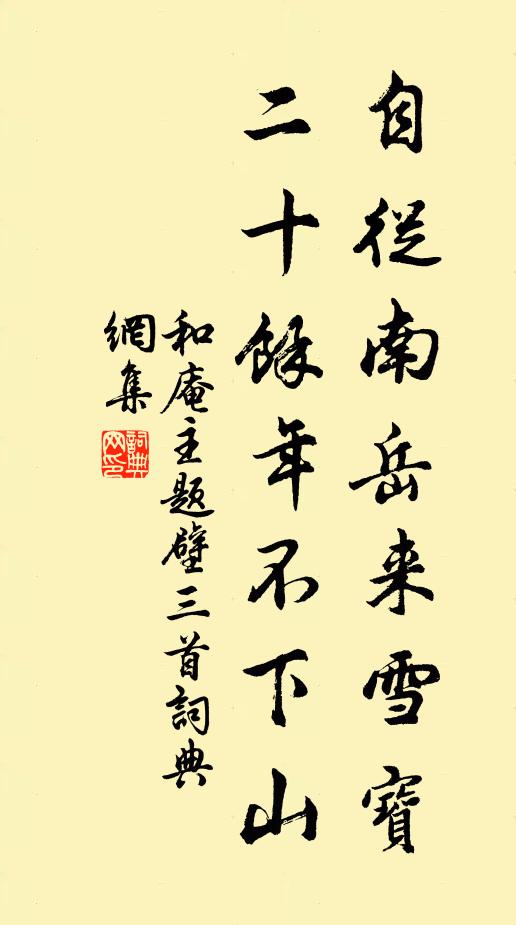 自從南岳来雪寶
二十餘年不下山
和庵主題壁三首詞典
網集
詞典网印